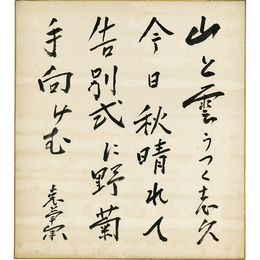 山と雲うつく志久
今日秋晴れて
告別式に野菊
手向けむ